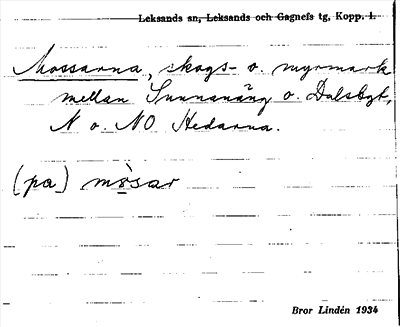 Leksands sn, Leksands och Gagnefs tg, Kopp. l.
Mossarna, skogs- o. myrmark
mellan Sunnanäng o. Dalsbyt,
N o. NO Hedarna.
(pa) mòsar
Bror Lindén 1934